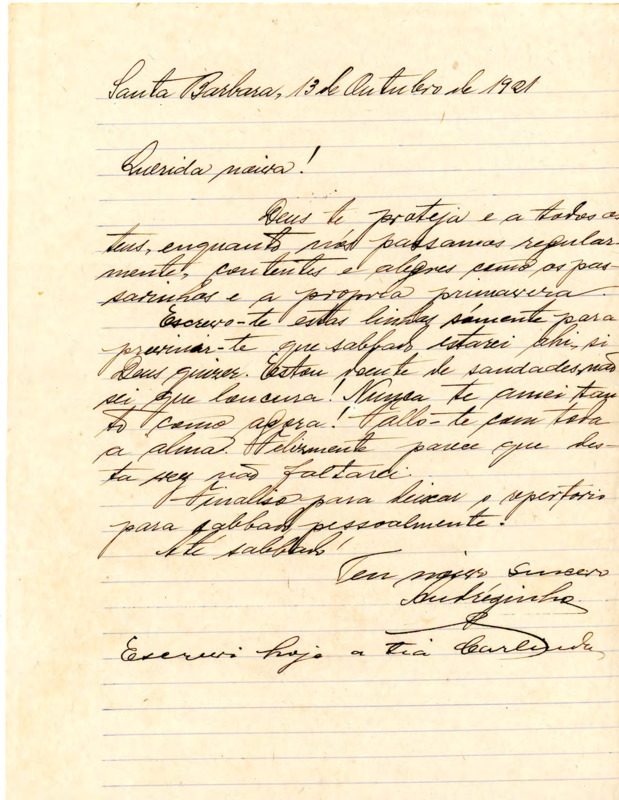 Santa Barbara, 13 de Outubro de 1921
Querida noiva!
Deus te proteja e a todos os
teus, enquanto nós passamos regular-
mente, contentes e alegres como os pas-
sarinhos e a propria primavera.
Escrevo-te estas linhas sómente para
previnir-te que sabbado estarei ahi, si
Deus quizer. Estou doente de saudades, não
sei que loucura! Nunca te amei tan-
to como agora! Fallo-te com toda
a alma. Felizmente parece que des-
ta vez não faltarei.
Finaliso para deixar o repertorio
para sabbado pessoalmente.
Até sabbado!
Teu noivo sincero
Andréginho
Escrevi hoje a tia